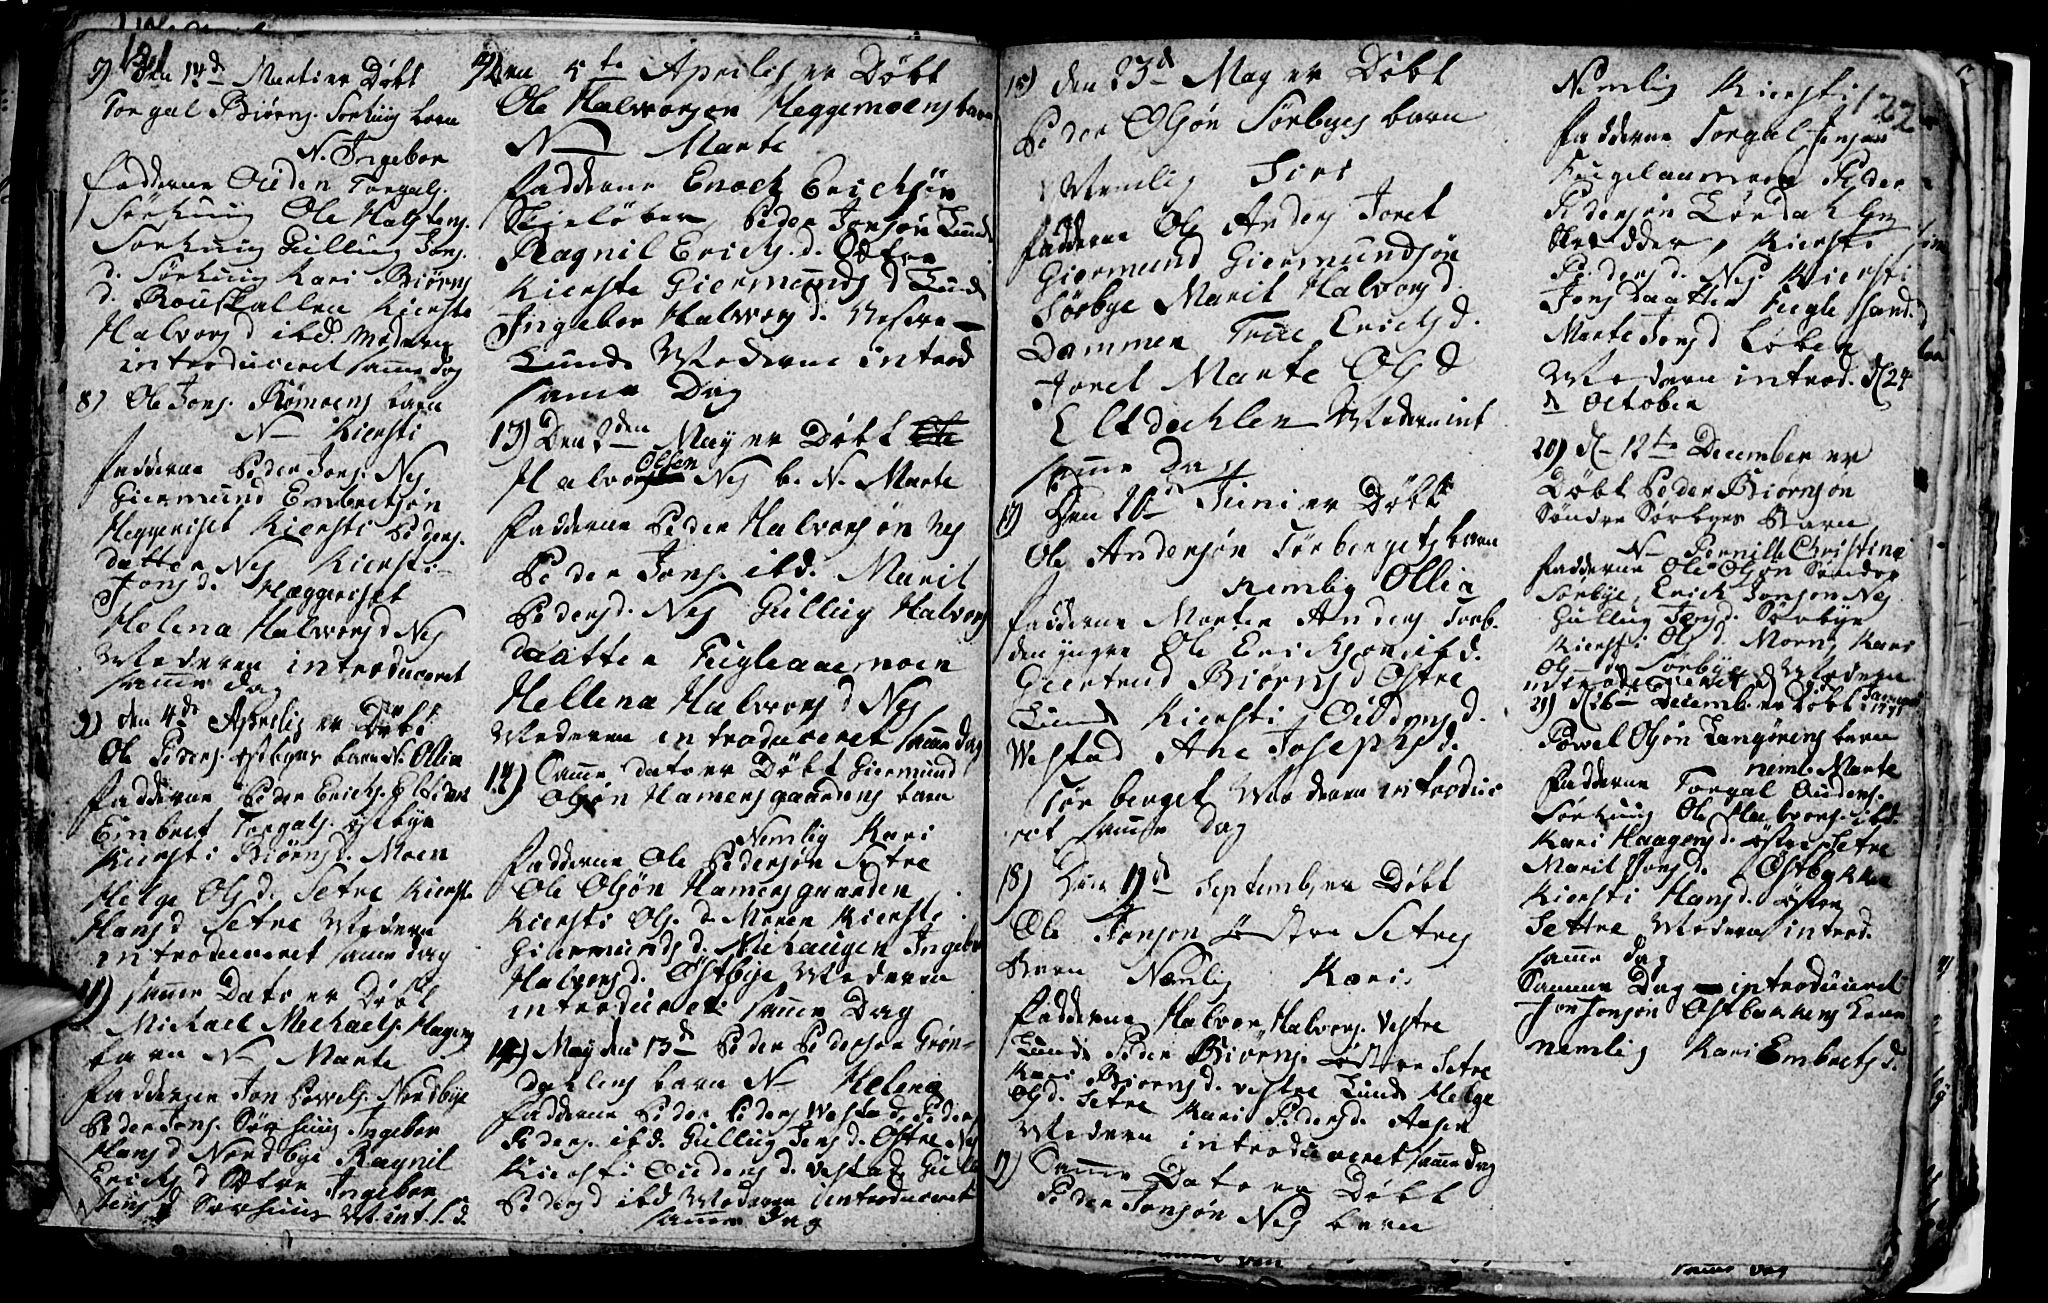 121
7) Den 14d Marti er Döbt
Torgal Biörns. Sorhuug barn
N. Ingebor
fadderne Ouden Torgals.
Sörhuug Ole Halstens.
Sorhuug Gulluug Jons.
d. Sörhuug Kari Biörns
d. Kierste
Halvors d ibd. Moderen
introduceret samme dag
8) Ole Jons. Römoens barn
N Kiersti
fadderne Peder Jons. Nes
Giermund Embretsön
Heggeriset Kiersti Peders.
datter Nes Kiersti
Jons d. Hæggeriset
Helena Halvors d Nes
Moderen introduceret
samme dag
9) den 4de Aprilis er Döbt
Ole Peders. östbyes barn N. Ollia
fadderne Peder Erichs.
Embret Torgals. östbye
Kiersti Biörns d. Moen
Helge Ols d. Setre Kierste
Hans d Setre Moderen
introduceret samme dag
11) samme Dato er Döbt
Mickael Mickaels. Hagens
barn N Marte
fadderne Jon Povels. Nordbye
Peder Jons. Sörhuug Ingebor
Hans d Nordbye Ragnil
Erichs d Setre Ingebor
Jens d Sorhuug M. int. s. d.
12) Den 5te Aprilis er Döbt
Ole Halvorsön Heggemoens barn
N Marte
fadderne Enoch Erichsön
Skieløber, Peder Jonsön Lunde
Ragnil Erichs. d. Setre
Kierste Giermunds d Lunde
Ingebor Halvors d. Vestre
Lunde Moderne introd
samme Dag
13) Den 2den May er Döbt Ole
Halvors Olsen Nes b. N. Marte
fadderne Peder Halvorsön Nes
Peder Jons. ibd. Marit
Peders d. Nes Gullug Halvors
daatter Fugleaaemoen
Hellena Halvors d Nes
Moderen introduceret samme dag
14) Samme dato er Döbt Giermund
Olsön Hamersgaardens barn
Nemlig Kari
fadderne Ole Pedersön Sætre
Ole Olsön Hamersgaarden
Kiersti Ols. d. Moren Kierste
Giermunds d. Nichaugen Ingebor
Halvors d. Östbye Moderen
introduceret samme Dag
14) May den 13d Peder Pedersen Grön-
dahlens barn N Helena
fadderne Peder Peders Vestad, Peder
Peders. ibd. Gullug Jens d. Östre Nes
Kiersti Oudens d. Vestad Gulle
Peders d ibd Moderen introduceret
samme dag
15) den 23d May er Döbt
Peder Olsön Sörbyes barn
Nemlig Siri
fadderne Ole Anders Joret
Giermund Giermundsön
Sörbye Marit Halvors d.
Dammen Trœe Erichs d.
Joret Marte Ols d
Eltdahlen Moderen int
samme Dag
17) Den 20d Juni er Döbt
Ole Andersön Törbergets barn
nemlig Ollia
fadderne Morten Anders Torb.
den yngre Ole Ericksön ibd.
Giertrud Biörns d Östre
Lunde Kiersti Oudens d.
Westad Ane Josephs d.
Törberget Moderen introduc
ret samme dag
18) Den 19d September Döbt
Ole Jonsön östre Setres
Barn Nemlig Kari
fadderne Halvor Halvors. Vestre
Lunde Peder Biörns. östre Setre
Kari Biörns d. vestre Lunde Helge
Ols d. Setre Kari Peders d. Aasen
Moderen introduceret samme dag
19) Samme Dato er Döbt
Peder Jonsön Nes barn
122
Nemlig Kiersti
fadderne Torgal Jensön
Fuglaamoen Peder
Pedersön Lördahl
Skredder, Kiersti
Peders d. Nes Kiersti
Jons daatter Fuglesand.
Marte Jons d Løben
Moderen introd. d 24
October
20) d 12te December er
Döbt Peder Biörnsön
Söndre Sörbyes Barn
N Pernille Christine
fadderne Ole Olsön Söndre
Sörbye, Erick Jonsön Nes
Gullug Jens d. Sörbye
Kiersti Ols d. Moren Kari
Ols d Sörbye Moderen
introduceret
21) d 26 Decemb. er Döbt
Powel Olsön Langörens barn
neml. Marte
fadderne Torgal Oudens.
Sörhuug Ole Halvors. ibd.
Kari Haagens d. östre Setre
Marit Jons d. Östbakken
Kiersti Hans d. östre
Settre Moderen introd.
samme dag
Samme Dag introduceret
Jon Jonsön Östbakkens Kone
nemlig Kari Embrets d.